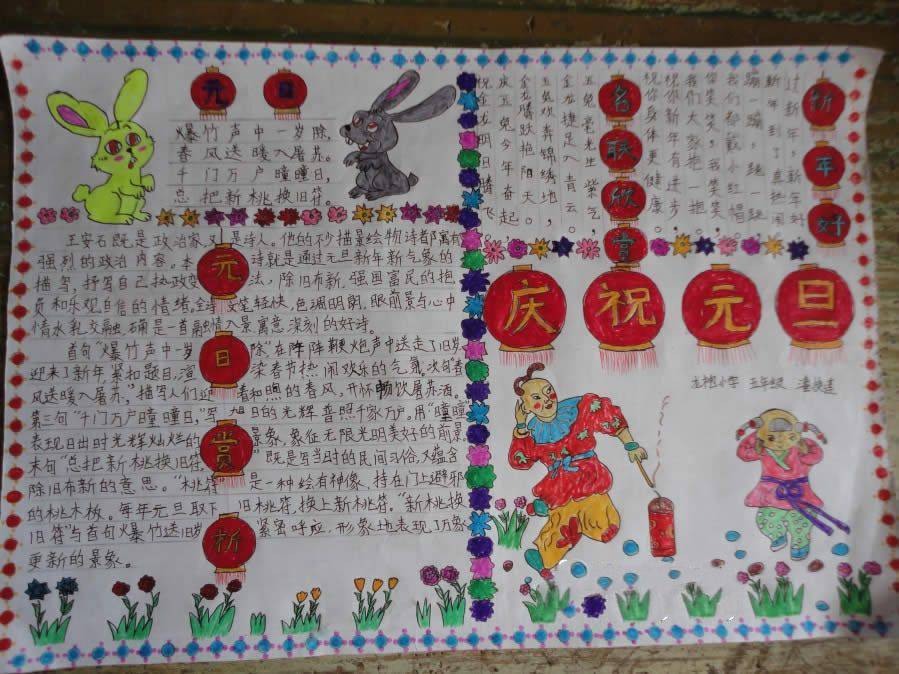 元旦
爆竹声中一岁除,
春风送暖入屠苏。
千门万户曈曈日,
总把新桃换旧符。
元日赏析
王安石既是政治家,又是诗人。他的不少描景绘物诗都寓有
强烈的政治内容。本诗就是通过元旦新年新气象的
描写,抒写自己执政变法,除旧布新,强国富民的抱
负和乐观自信的情绪。全诗文笔轻快,色调明朗,眼前景与心中
情水乳交融,确是一首融情入景,寓意深刻的好诗。
首句"爆竹声中一岁除"在阵阵鞭炮声中送走了旧岁,
迎来了新年。紧扣题目,渲染春节热闹欢乐的气氛。次句"春
风送暖入屠苏",描写人们迎着和煦的春风,开怀畅饮屠苏酒。
第三句"千门万户曈曈日,"写旭日的光辉普照千家万户。用"曈曈"
表现日出时光辉灿烂的景象,象征无限光明美好的前景
末句"总把新桃换旧符"既是写当时的民间习俗,又蕴含
除旧布新的意思。"桃符"是一种绘有神像、持在门上避邪
的桃木板。每年元旦取下旧桃符,换上新桃符。"新桃换
旧符"与首句爆竹送旧岁紧密呼应,形象地表现了万象
更新的景象。
新年好
过新年了,新年好
新年到了,真热闹
蹦一蹦,跳一跳,
我们都戴小红帽。
你笑笑,我笑笑,
我们大家抱一抱。
祝你新年有进步
祝你身体更健康
名联欣赏
玉兔毫光生紫气,
金龙捷足入青云。
玉兔欢奔锦绣地,
金龙腾跃艳阳天。
庆玉兔今年奋起
祝金龙明日腾飞
庆祝元旦
小学 五年级